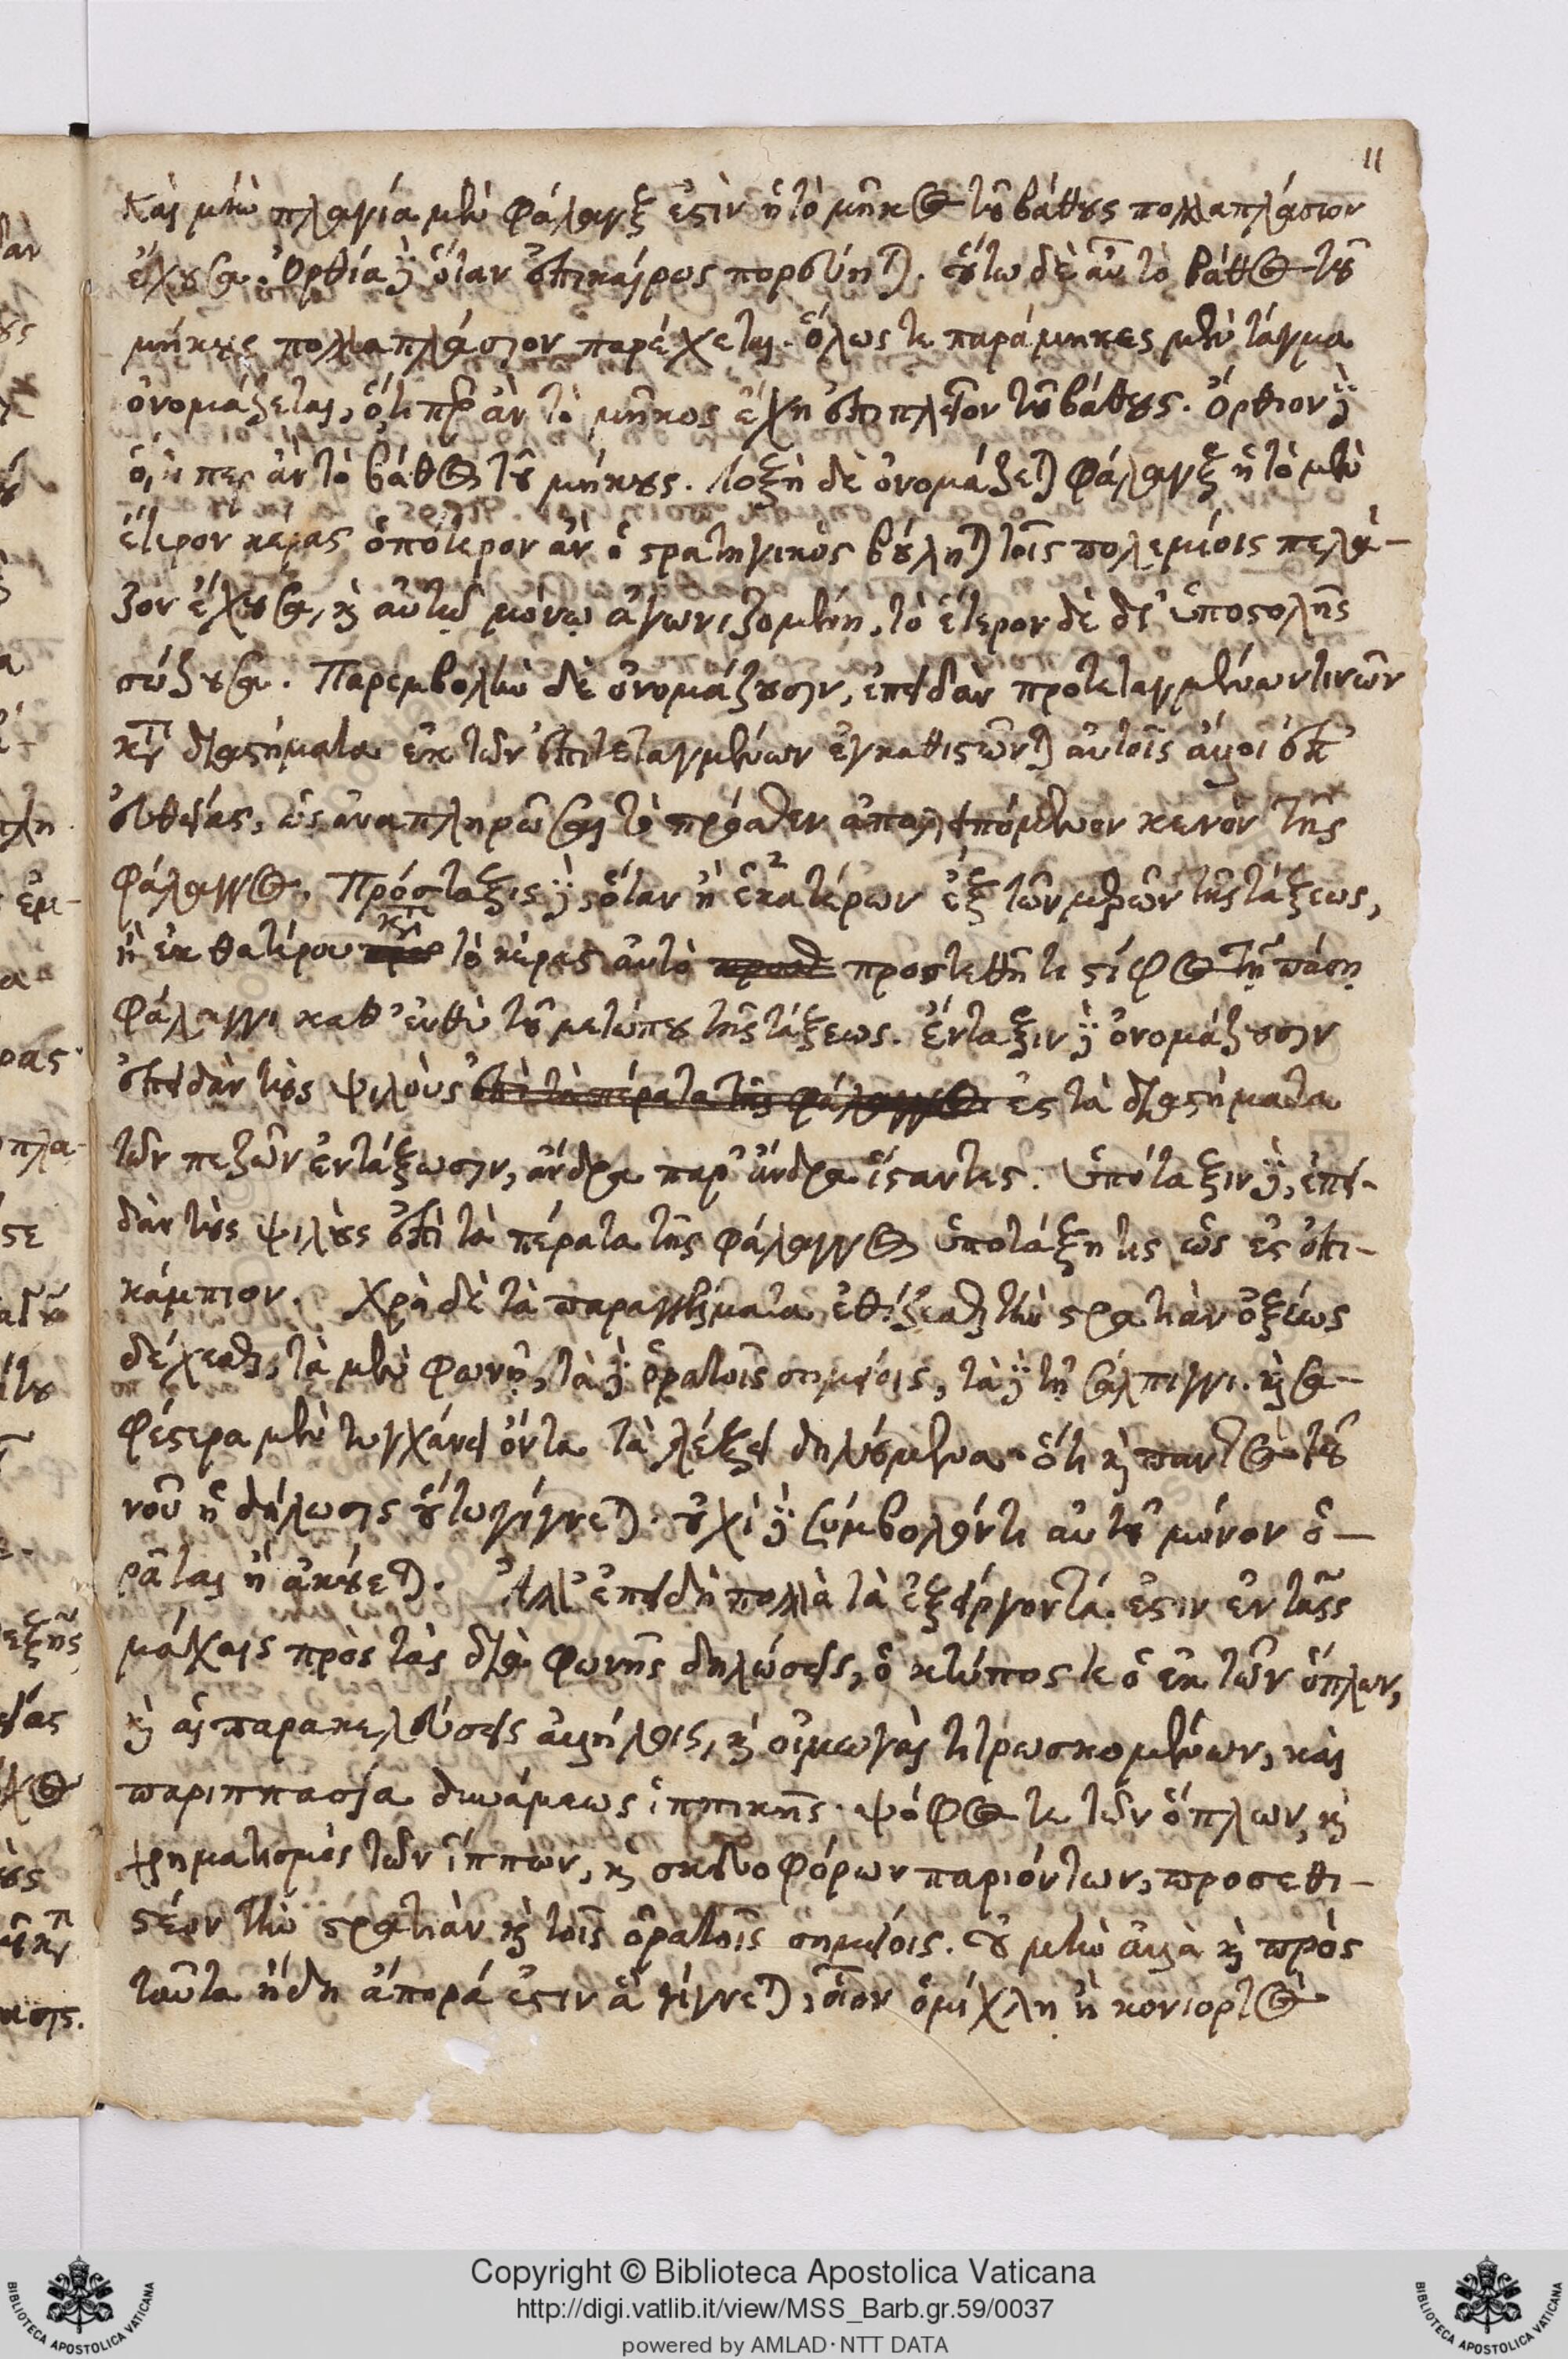 11
Καὶ μὴν πλαγία μὲν φάλαγξ ἐστὶν ἡ τὸ μῆκος τοῦ βάθους πολλαπλάσιον
ἔχουσα. Ὀρθία δὲ ὅταν ἐπικαίρως πορεύηται. οὕτω δὲ αὖ τὸ βάθος τοῦ
μήκους πολλαπλάσιον παρέχεται. ὅλως τε παράμηκες μὲν τάγμα
ὀνομάζεται, ὅ,τι περ ἂν τὸ μῆκος ἔχῃ ἐπιπλεῖον τοῦ βάθους. Ὄρθιον δὲ
ὅ,τι περ ἂν τὸ βάθος τοῦ μήκους. Λοξὴ δὲ ὀνομάζεται φάλαγξ ἡ τὸ μὲν
ἕτερον κέρας ὁπότερον ἂν ὁ στρατηγικὸς βούληται τοῖς πολεμίοις πελά-
ζον ἔχουσα, καὶ αὐτῷ μόνῳ ἀγωνιζομένη, τὸ ἕτερον δὲ δι' ὑποστολῆς
σώζουσα. Παρεμβολὴν δὲ ὀνομάζουσιν, ἐπειδὰν προτεταγμένων τινῶν
κατὰ διαστήματα ἐκ τῶν ἐπιτεταγμένων ἐγκαθιστῶνται αὐτοῖς ἄλλοι ἐπ'
εὐθείας, ὡς ἀναπληρῶσαι τὸ πρόσθεν ἀπολειπόμενον κενὸν τῆς
φάλαγγος. Πρόσταξις δὲ, ὅταν ἢ ἑκατέρων ἐξ τῶν μερῶν τῆς τάξεως,
ἢ ἐκ θατέρου κατὰ τὸ κέρας αὐτὸ προστεθῇ τι στίφος τῇ πάσῃ
φάλαγγι κατ' εὐθὺ τοῦ μετώπου τῆς τάξεως. Ἔνταξιν δὲ ὀνομάζουσιν
ἐπειδὰν τοὺς ψιλοὺς ἐπὶ τὰ πέρατα τῆς φάλαγγος ἐς τὰ διαστήματα
τῶν πεζῶν ἐντάξωσιν, ἄνδρα παρ' ἄνδρα ἱστάντες. Ὑπόταξιν δὲ, ἐπει-
δὰν τοὺς ψιλοὺς ἐπὶ τὰ πέρατα τῆς φάλαγγος ὑποτάξῃ τις ὡς ἐς ἐπι-
κάμπιον. Χρὴ δὲ τὰ παραγγέλματα ἐθίζεσθαι τὴν στρατιὰν ὀξέως
δέχεσθαι, τὰ μὲν φωνῇ, τὰ δὲ ὁρατοῖς σημείοις, τὰ δὲ τῇ σάλπιγγι. καὶ σα-
φέστερα μὲν τυγχάνει ὄντα τὰ λέξει δηλούμενα. ὅτι καὶ παντὸς τοῦ
νοῦ ἡ δήλωσις οὕτω γίγνεται. οὐχὶ δὲ ξύμβολόν τι αὐτοῦ μόνον ὁ-
ρᾶται ἢ ἀκούεται. Ἀλλ' ἐπειδὴ πολλὰ τὰ ἐξείργοντά ἐστιν ἐν ταῖς
μάχαις πρὸς τὰς διὰ φωνῆς δηλώσεις, ὁ κτύπος τε ὁ ἐκ τῶν ὅπλων,
καὶ αἱ παρακελεύσεις ἀλλήλοις, καὶ οἰμωγαὶ τιτρωσκομένων, καὶ
παριππασία δυνάμεως ἱππικῆς. ψόφος τε τῶν ὅπλων, καὶ
χρηματισμὸς τῶν ἵππων, καὶ σκευοφόρων παριόντων, προσεθι-
στέον τὴν στρατιὰν καὶ τοῖς ὁρατοῖς σημείοις. οὐ μὴν ἀλλὰ καὶ πρὸς
ταῦτα ἤδη ἄπορά ἐστιν ἃ γίγνεται, οἷον ὁμίχλη ἢ κονιορτὸς
Copyright © Biblioteca Apostolica Vaticana
http://digi.vatlib.it/view/MSS_Barb.gr.59/0037
powered by AMLAD·NTT DATA
BIBLIOTECA APOSTOLICA VATICANA
BIBLIOTECA APOSTOLICA VATICANA